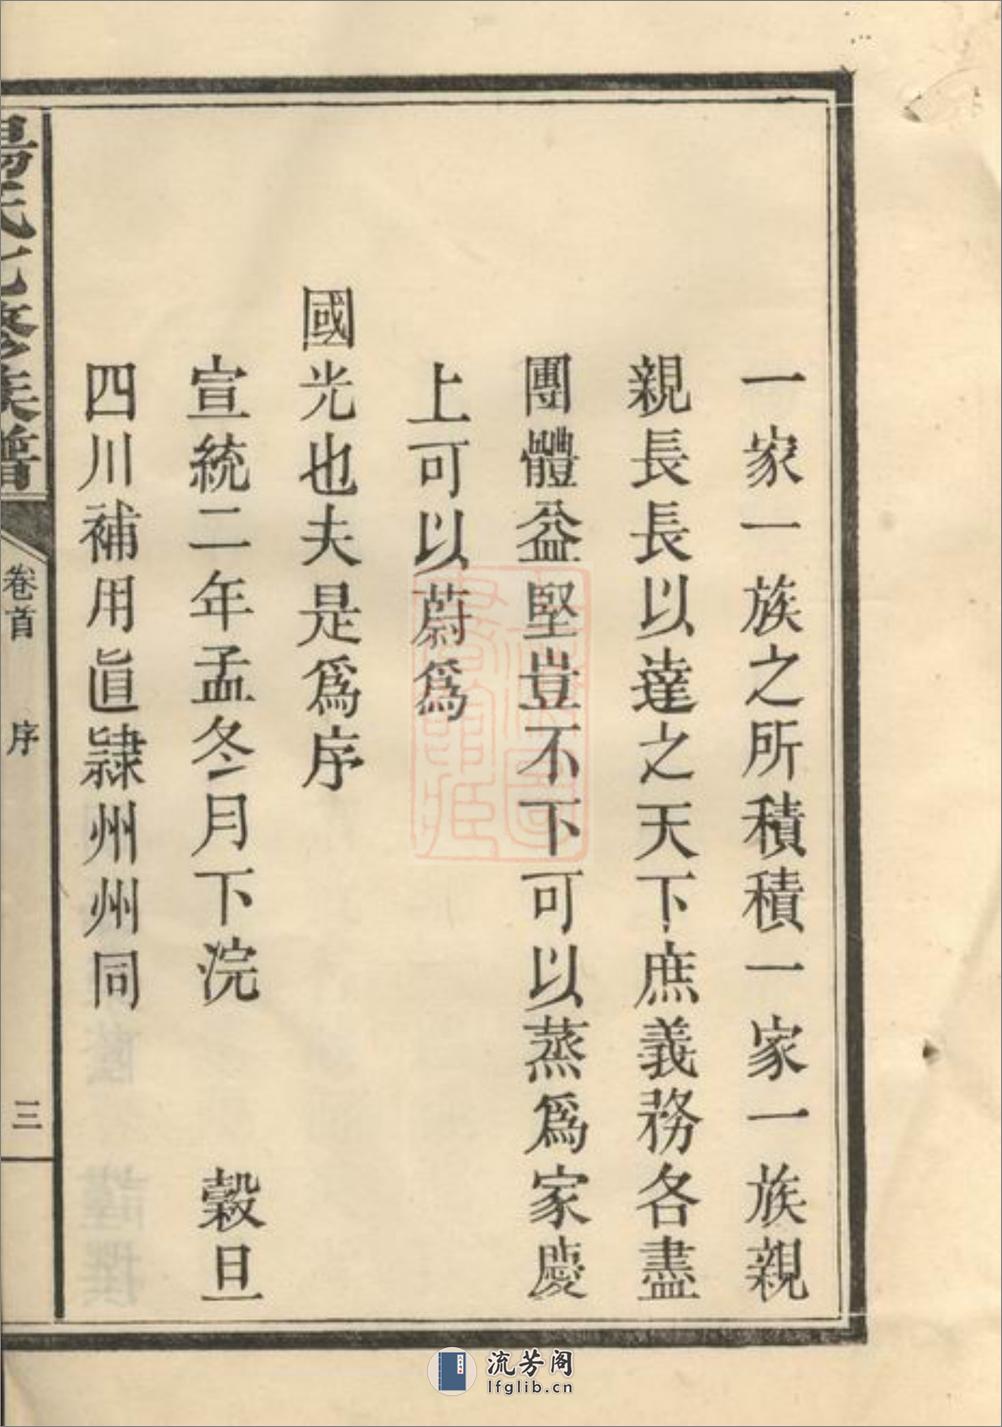 一家一族之所積積一家一族親
親長長以達之天下庶義務各盡
團體益堅豈不下可以蒸爲家慶
上可以蔚爲
國光也夫是爲序
宣統二年孟冬月下浣　穀旦
四川補用直隸州州同
氏七修族譜
卷首
序
三
流芳阁
lfglib.cn